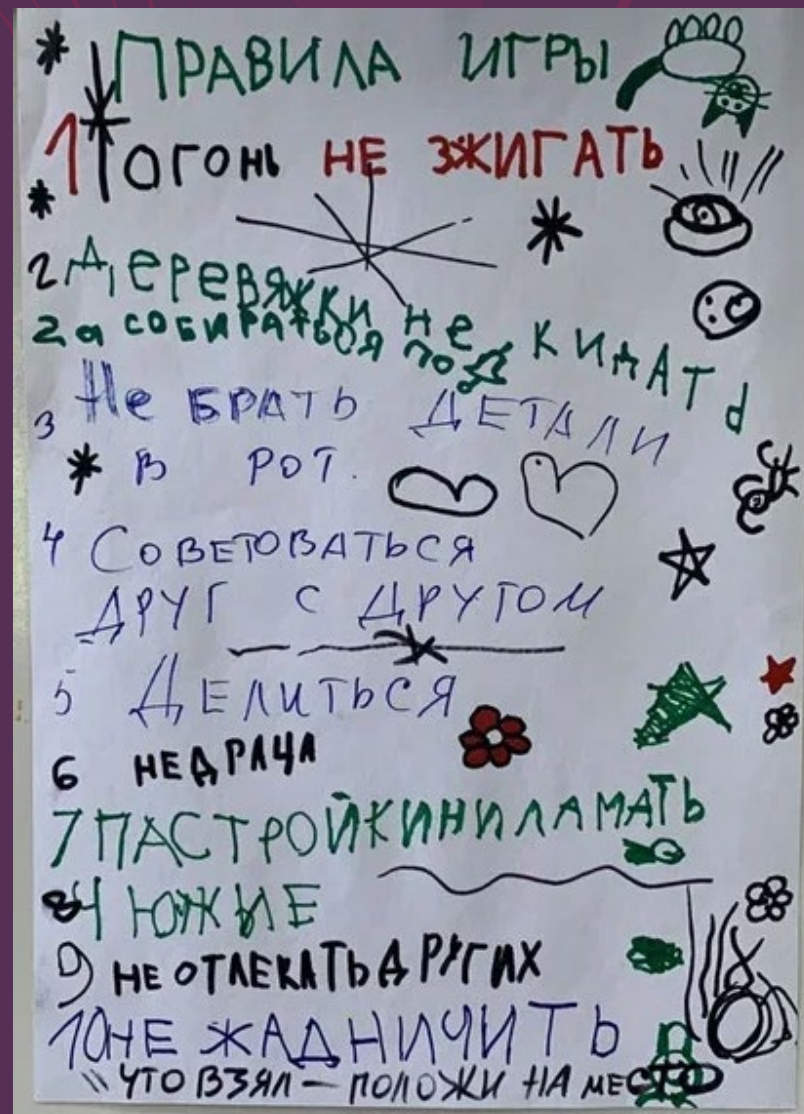 ПРАВИЛА ИГРЫ
1 ОГОНЬ НЕ ЗЖИГАТЬ
2 ДЕРЕВЯЖКИ НЕ КИДАТЬ
2а СОБИРАТЬСЯ ПОД
3 Не БРАТЬ ДЕТАЛИ
В РОТ.
4 СОВЕТОВАТЬСЯ
ДРУГ С ДРУГОМ
5 ДЕЛИТЬСЯ
6 НЕДРАЧА
7 ПАСТРОЙКИНИЛАМАТЬ
8 ЧЮЖЫЕ
9) НЕ ОТЛЕКАТЬ ДРУГИХ
10 НЕ ЖАДНИЧИТЬ
11 ЧТО ВЗЯЛ — ПОЛОЖИ НА МЕСТО